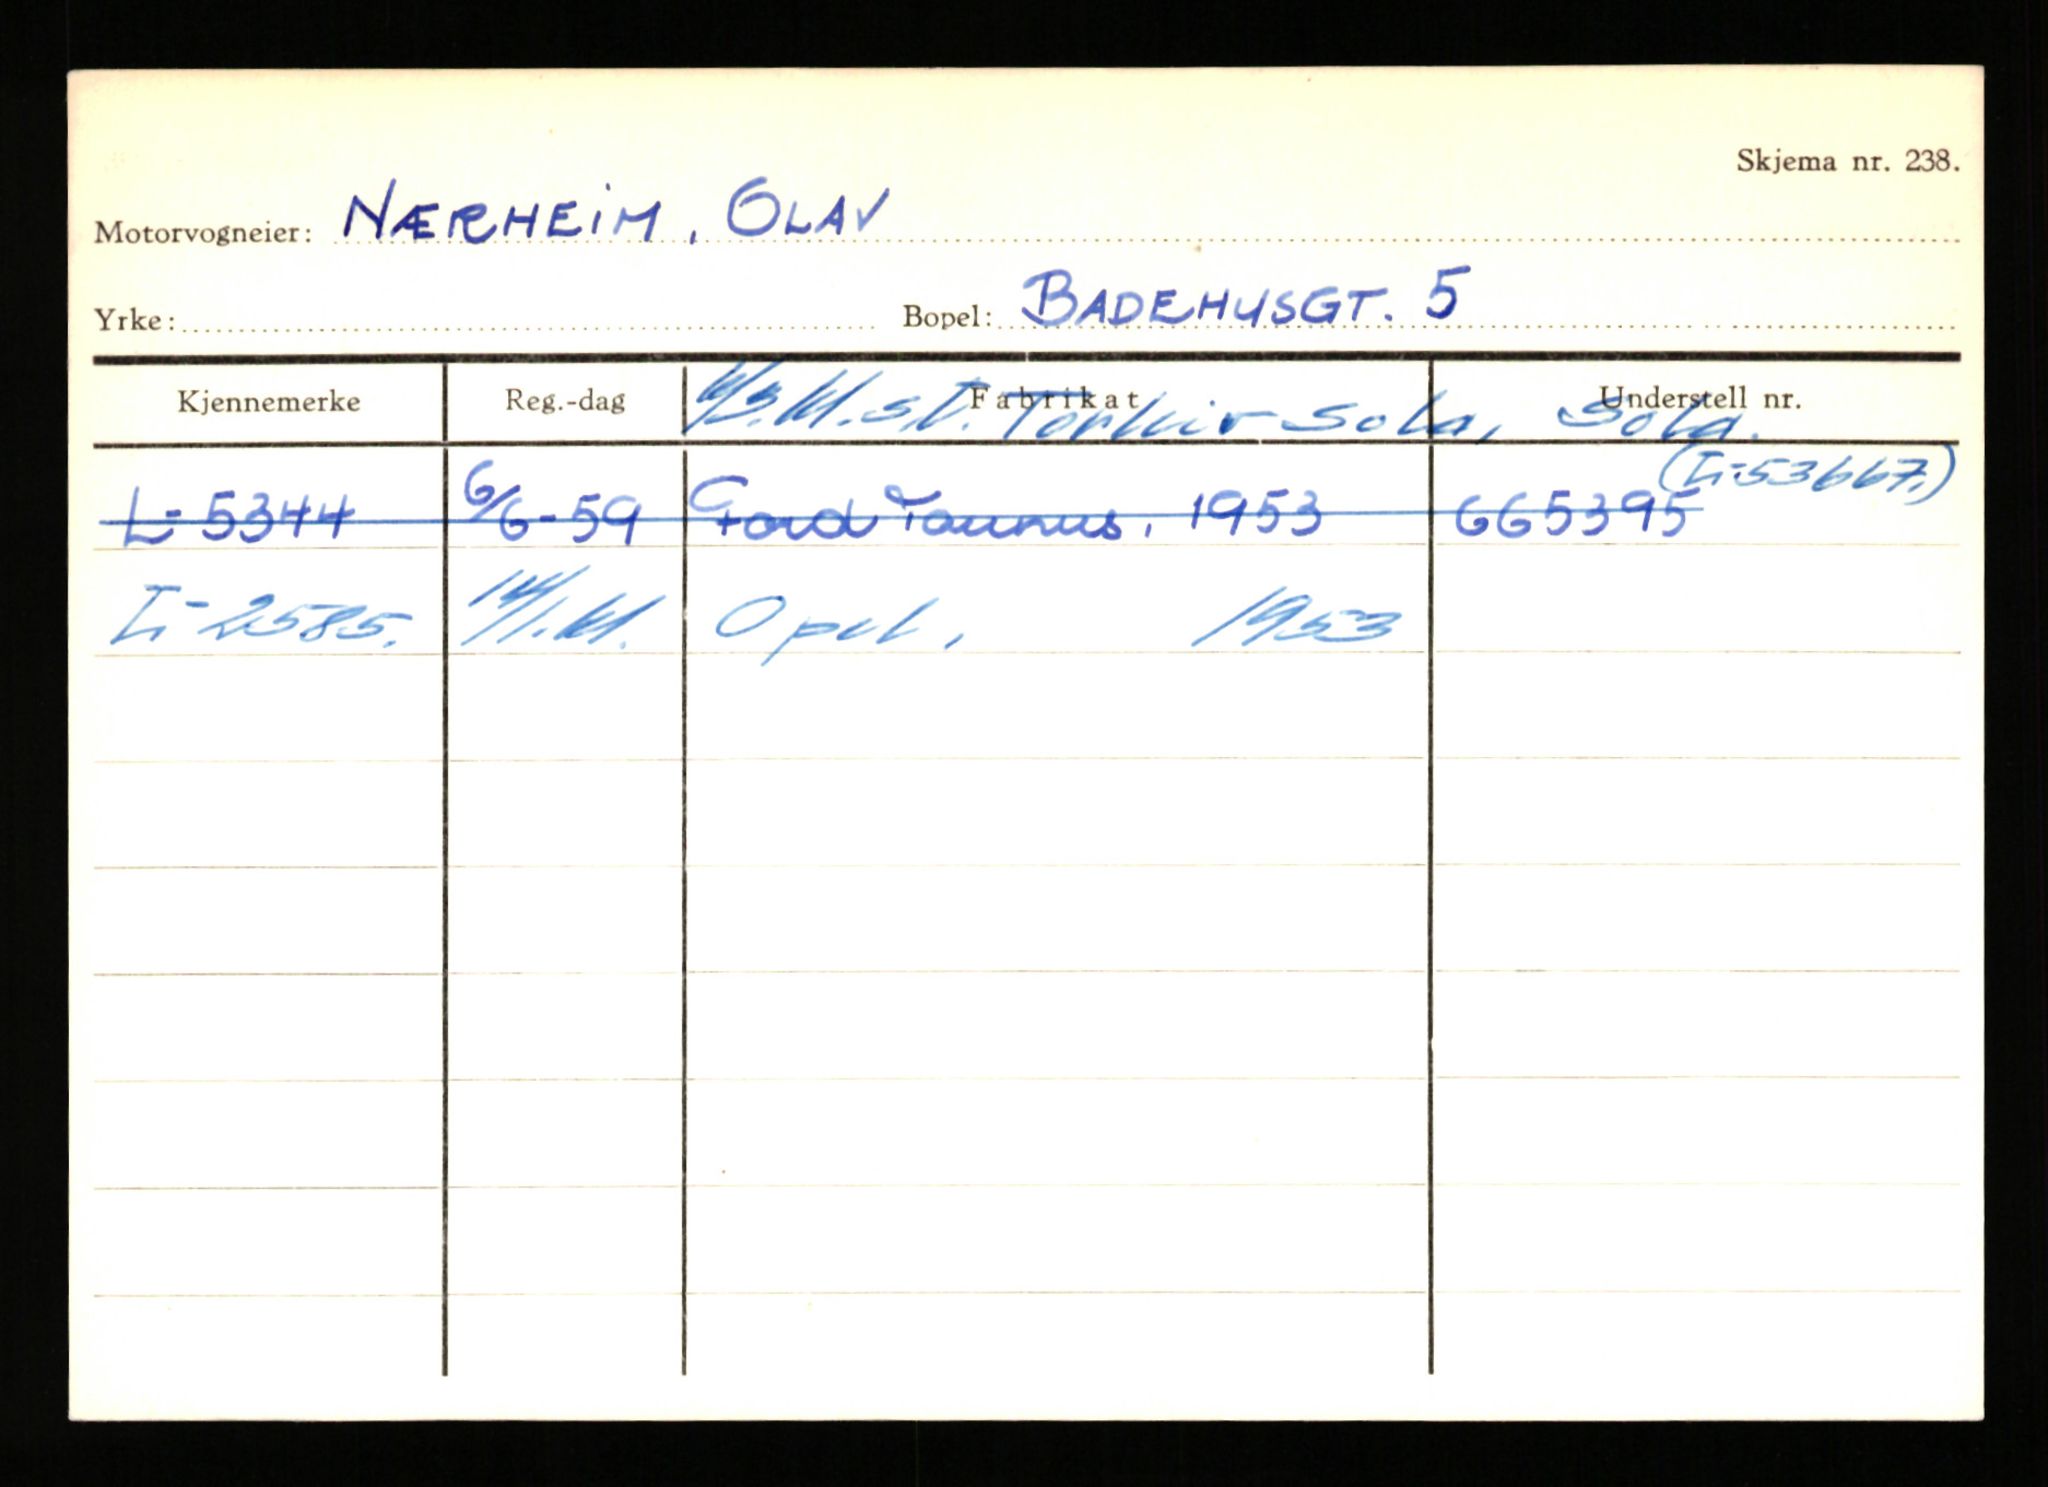 Skjema nr. 238.
Motorvogneier: NÆRHEIM, OLAV
Yrke: Bopel: BADEHUSGT. 5
Kjennemerke Reg.-dag Fabrikat Understell nr.
st. Torleiv Sola, Sola.
(L-53667.)
L-5344 6/6-59 Ford Taunus, 1953 665395
L-2585. 14/1.61. Opel, 1953